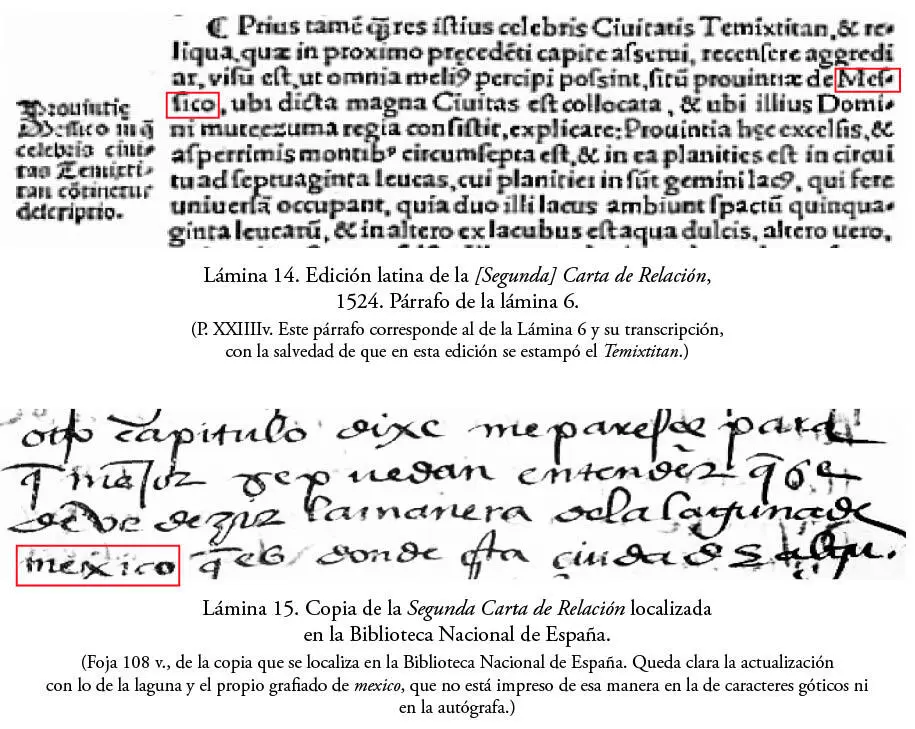 ¶ Prius tamẽ q̃ res iſtius celebris Ciuitatis Temixtitan, & re-
liqua, quæ in proximo pręcedẽti capite aſſerui, recenſere aggredi
ar, viſũ eſt, ut omnia meliꝰ percipi poſsint, ſitũ prouintiæ de Meſ-
ſico, ubi dicta magna Ciuitas eſt collocata, & ubi illius Domi-
ni muteezuma regia conſiſtit, explicare: Prouintia hęc excelſis, &
aſperrimis montibꝰ circumſepta eſt, & in ea planities eſt in circui
tu ad ſeptuaginta leucas, cui planitiei inſũt gemini lacꝰ, qui fere
uniuerſã occupant, quia duo illi lacus ambiunt ſpactũ quinqua-
ginta leucarũ, & in altero ex lacubus eſt aqua dulcis, altero uero,
Prouintię
Meſſico in q̃
celebris ciui-
tas Temixti-
tan cõtinetur
deſcriptio.
Lámina 14. Edición latina de la [Segunda] Carta de Relación,
1524. Párrafo de la lámina 6.
(P. XXIIIIv. Este párrafo corresponde al de la Lámina 6 y su transcripción,
con la salvedad de que en esta edición se estampó el Temixtitan.)
otro capitulo dixe me pareſce para
q̃ mejor se puedan entender q̃ se
deve dezir la manera de la laguna de
mexico q̃ es donde esta ciudad
Lámina 15. Copia de la Segunda Carta de Relación localizada
en la Biblioteca Nacional de España.
(Foja 108 v., de la copia que se localiza en la Biblioteca Nacional de España. Queda clara la actualización
con lo de la laguna y el propio grafiado de mexico, que no está impreso de esa manera en la de caracteres góticos ni
en la autógrafa.)